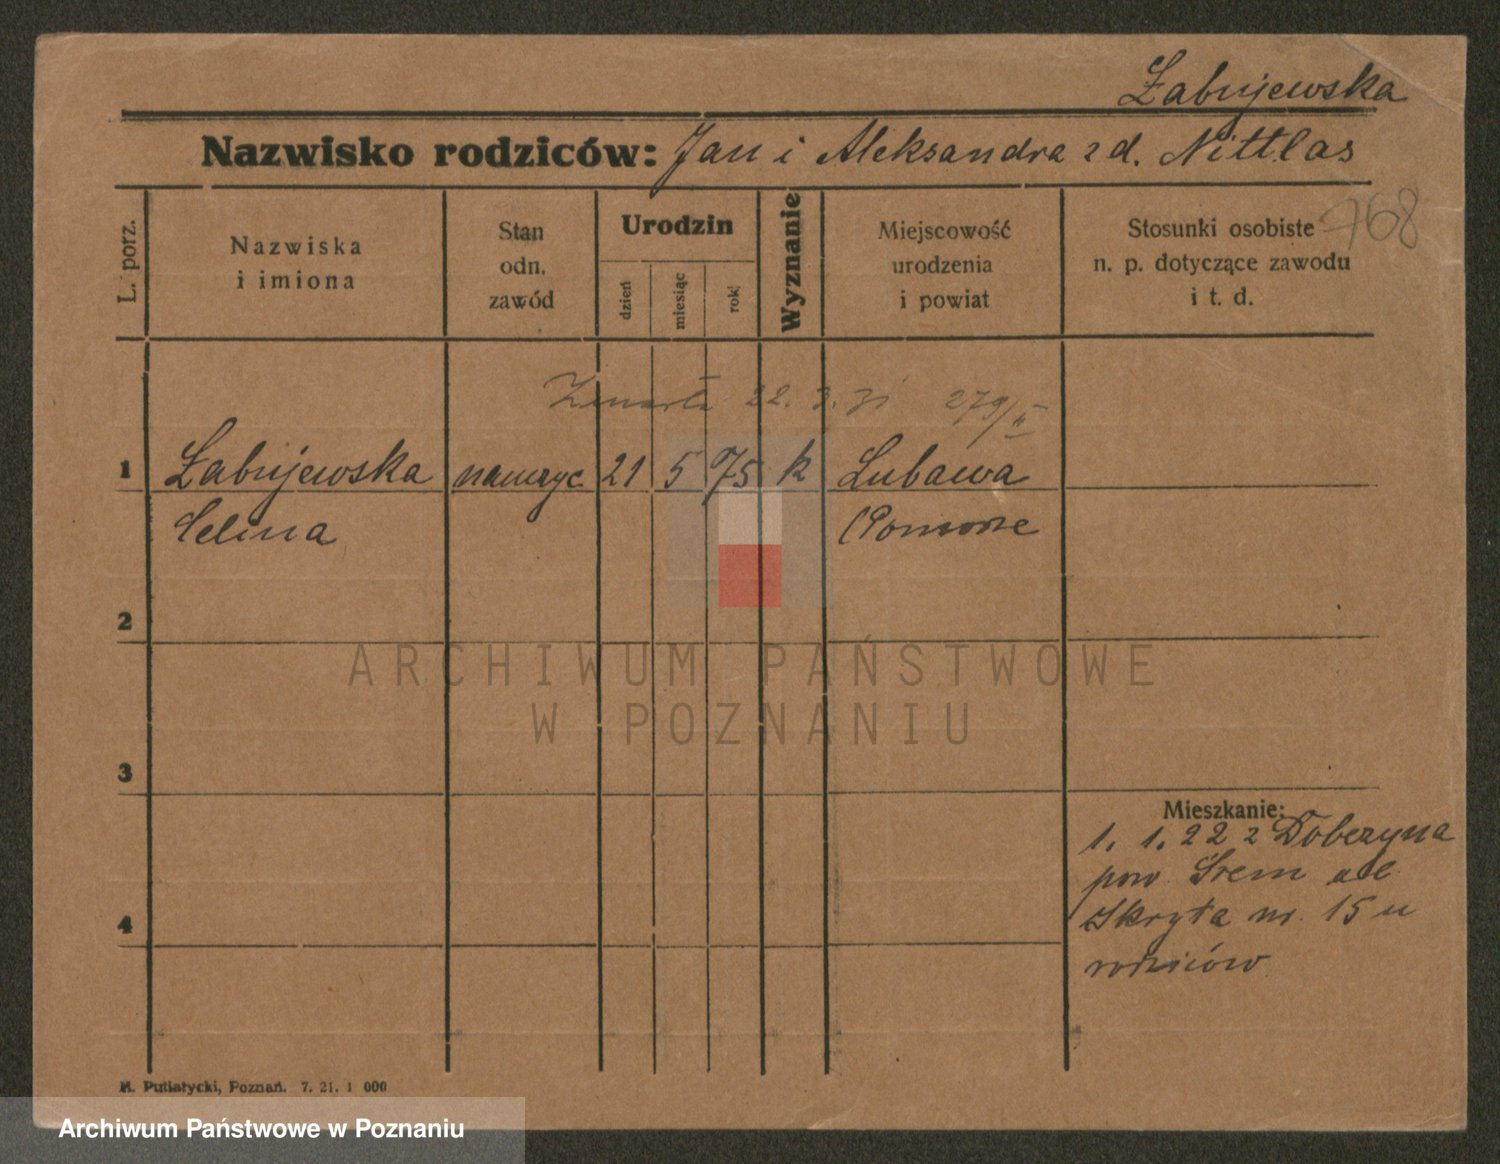 Żabujewska
Nazwisko rodziców: Jan i Aleksandra z d. Nittlas
768
L. porz.
Nazwiska
i imiona
Stan
odn.
zawód
Urodzin
dzień
miesiąc
rok
Wyznanie
Miejscowość
urodzenia
i powiat
Stosunki osobiste
n. p. dotyczące zawodu
i t. d.
Zmarła 22. 3. 31 279/II
1 Żabujewska nauczyc. 21 5 75 k Lubawa
Celina (Pomorze
2
3
4
Mieszkanie:
1. 1. 22 z Dobczyna
pow. Śrem ul.
Skryta nr. 15 u
rodziców
M. Putiatycki, Poznań. 7. 21. 1 000
ARCHIWUM PAŃSTWOWE
W POZNANIU
Archiwum Państwowe w Poznaniu